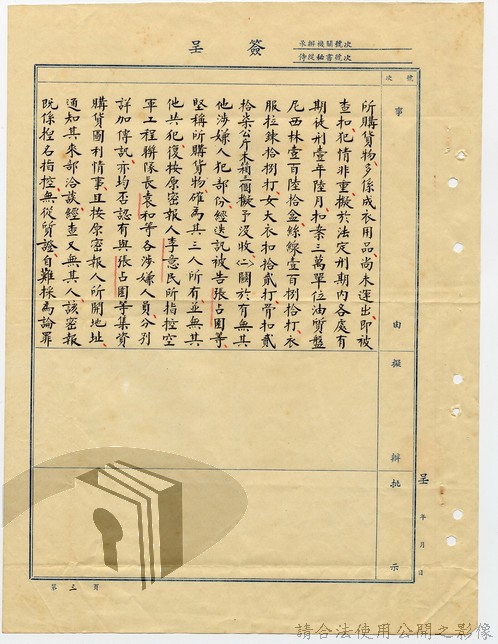 簽呈
承辦機關號次
侍從秘書號次
號次
事由
擬辦
批示
所購貨物多係成衣用品尚未運出即被
查扣犯情非重擬於法定刑期內各處有
期徒刑壹年陸月扣案三萬單位油質盤
尼西林壹百陸拾盒絲線壹百捌拾打、衣
服拉鍊拾捌打、女大衣扣拾貳打骨扣貳
拾柒公斤木箱三個擬予沒收㈡關於有無其
他涉嫌人犯部份經迭訊被告張占園等、
堅稱所購貨物、確為其三人所有、並無其
他共犯、復按原密報人李意民所指控空
軍工程聯隊長袁和等各涉嫌人員分別
詳加傳訊、亦均否認有與張占園等集資
購貨圖利情事、且按原密報人所開地址、
通知其來部洽談經查又無其人、該密報
既係揑名指控、無從質證、自難採為論罪
呈
年月日
第三頁
請合法使用公開之影像